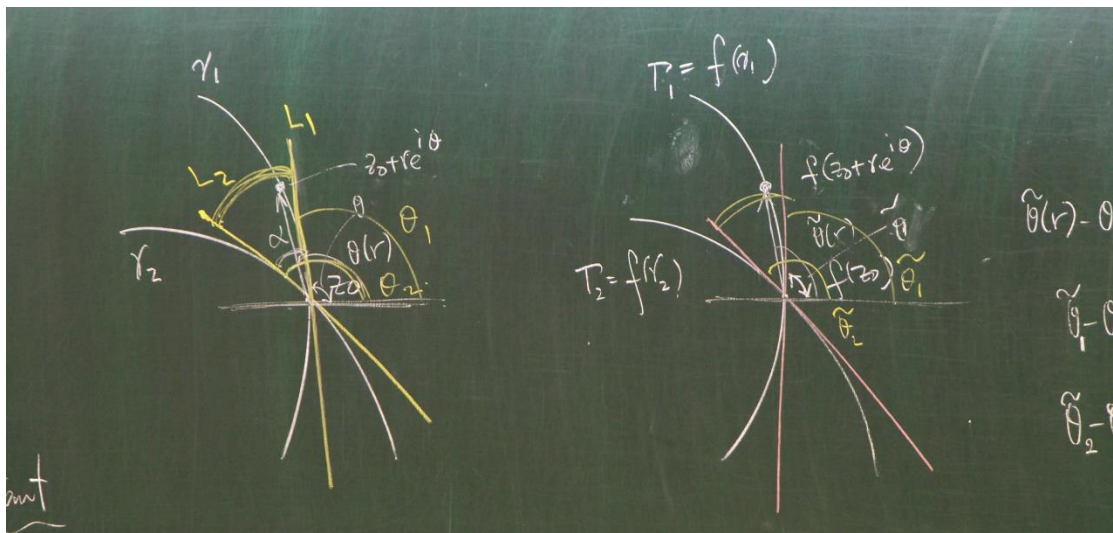 γ₁
L₁
z₀+re^{iθ}
L₂
θ
θ₁
α
θ(r)
γ₂
z₀
θ₂
Γ₁ = f(γ₁)
f(z₀+re^{iθ})
θ̃(r)
θ̃
Γ₂ = f(γ₂)
f(z₀)
θ̃₁
θ̃₂
θ̃(r) - θ
θ̃₁ - θ
θ̃₂ -